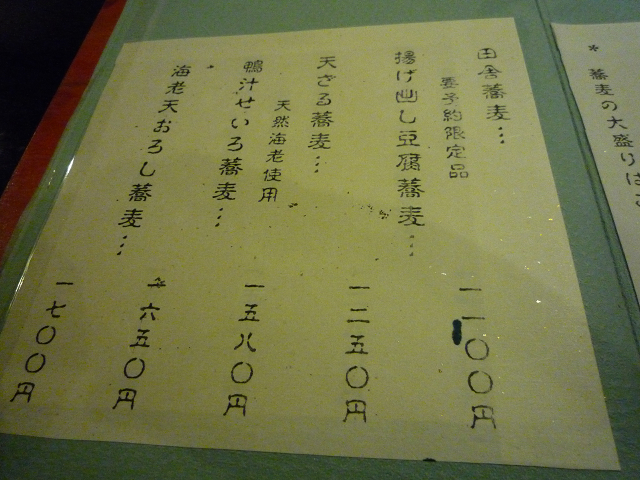 * 蕎麦の大盛りは
田舎蕎麦… 一一〇〇円
要予約限定品
揚げ出し豆腐蕎麦… 一二五〇円
天ざる蕎麦… 一五八〇円
天然海老使用
鴨汁せいろ蕎麦… 一六五〇円
海老天おろし蕎麦… 一七〇〇円